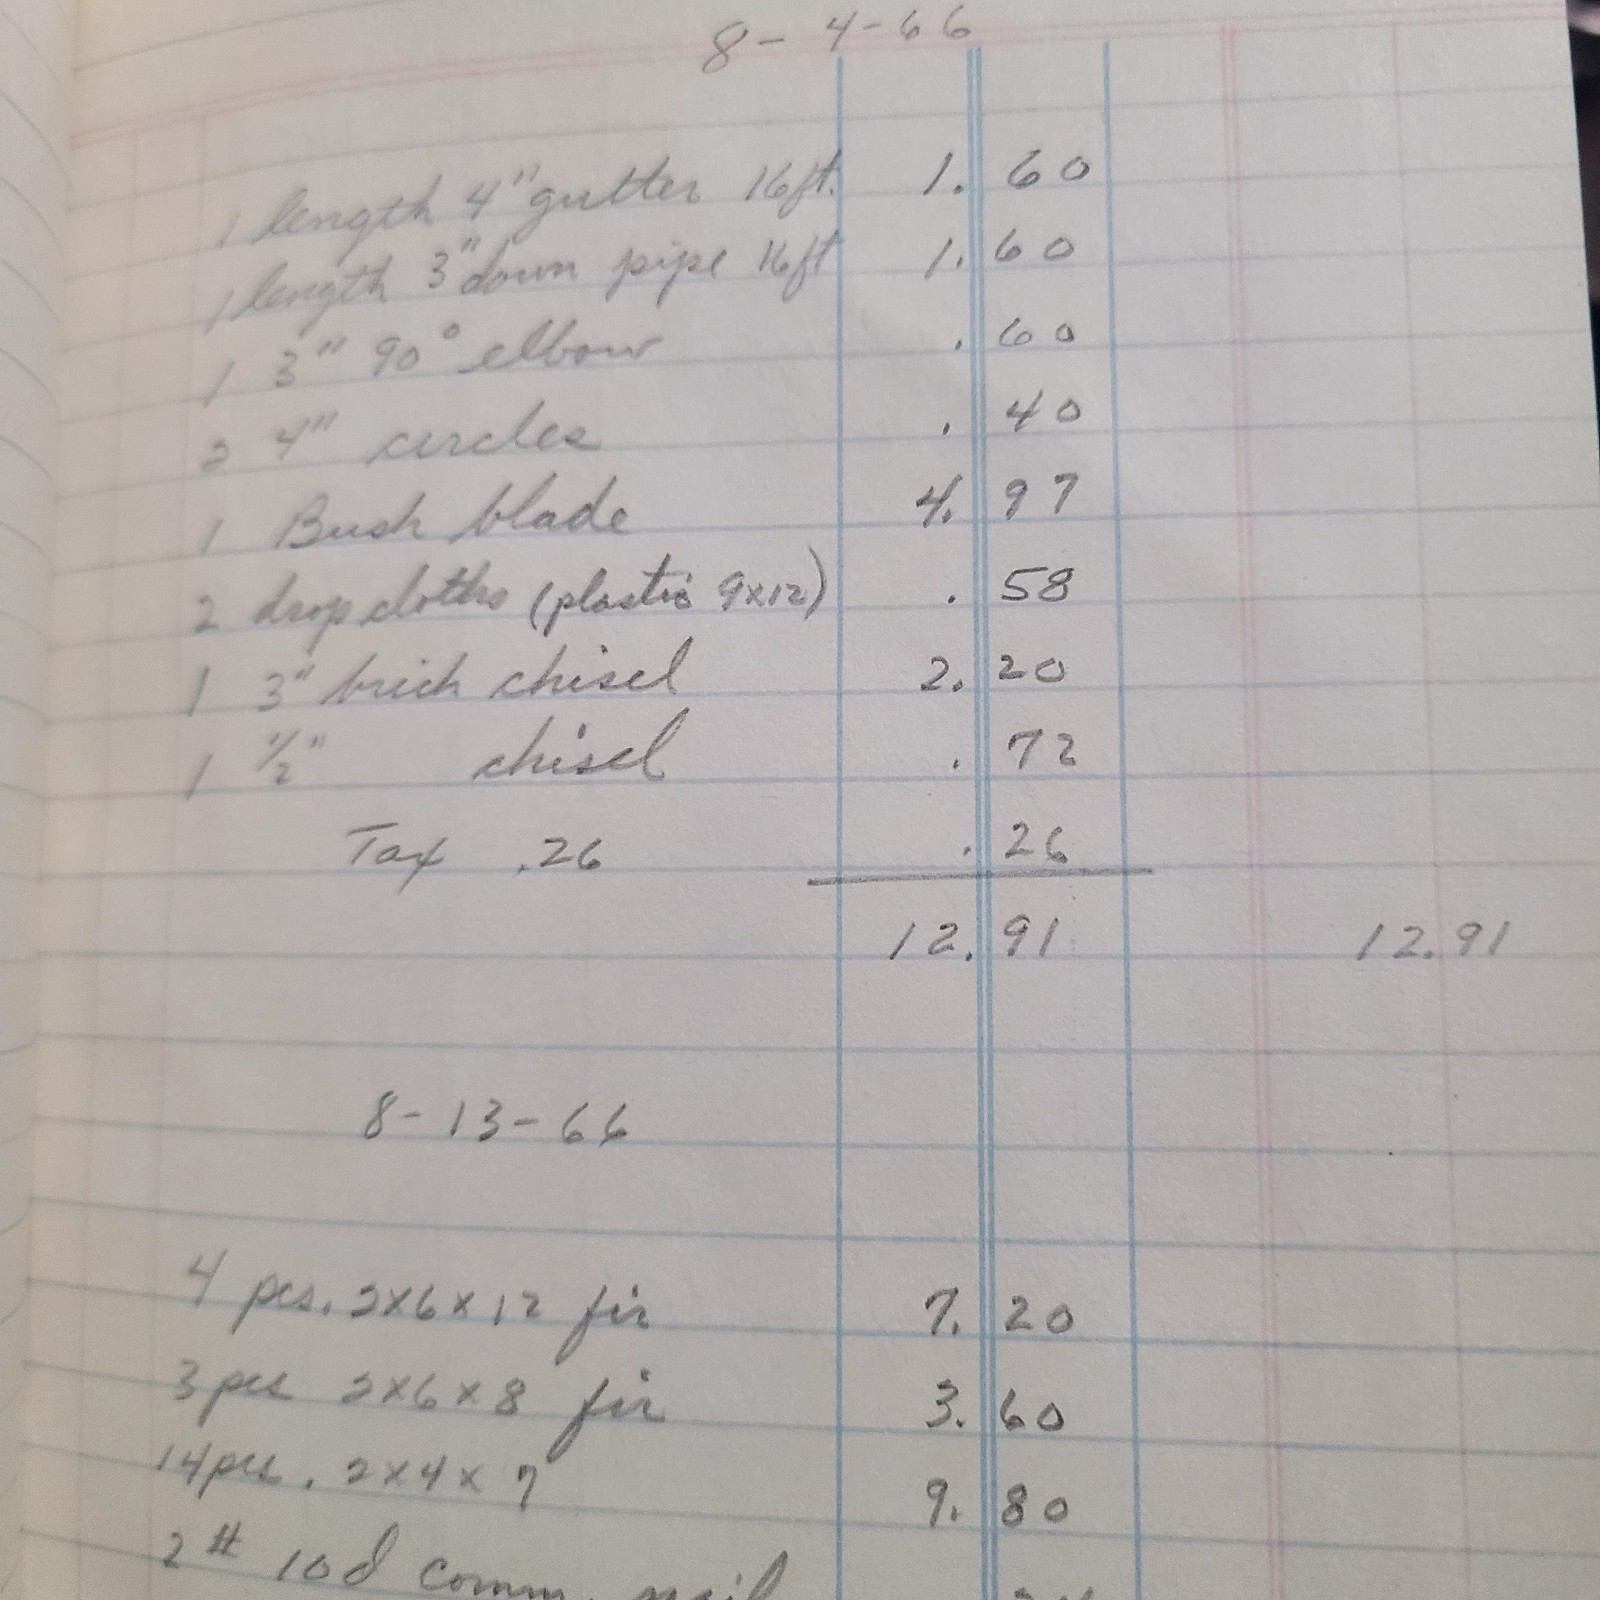 8-4-66
1 length 4" gutter 16ft. 1.60
1 length 3" down pipe 16ft 1.60
1 3" 90° elbow .60
2 4" circles .40
1 Bush blade 4.97
2 drop cloths (plastic 9x12) .58
1 3" brick chisel 2.20
1 1/2" chisel .72
Tax .26 .26
12.91 12.91
8-13-66
4 pcs. 2x6x12 fir 7.20
3 pcs 2x6x8 fir 3.60
14 pcs. 2x4x7 9.80
2# 10d comm. nail